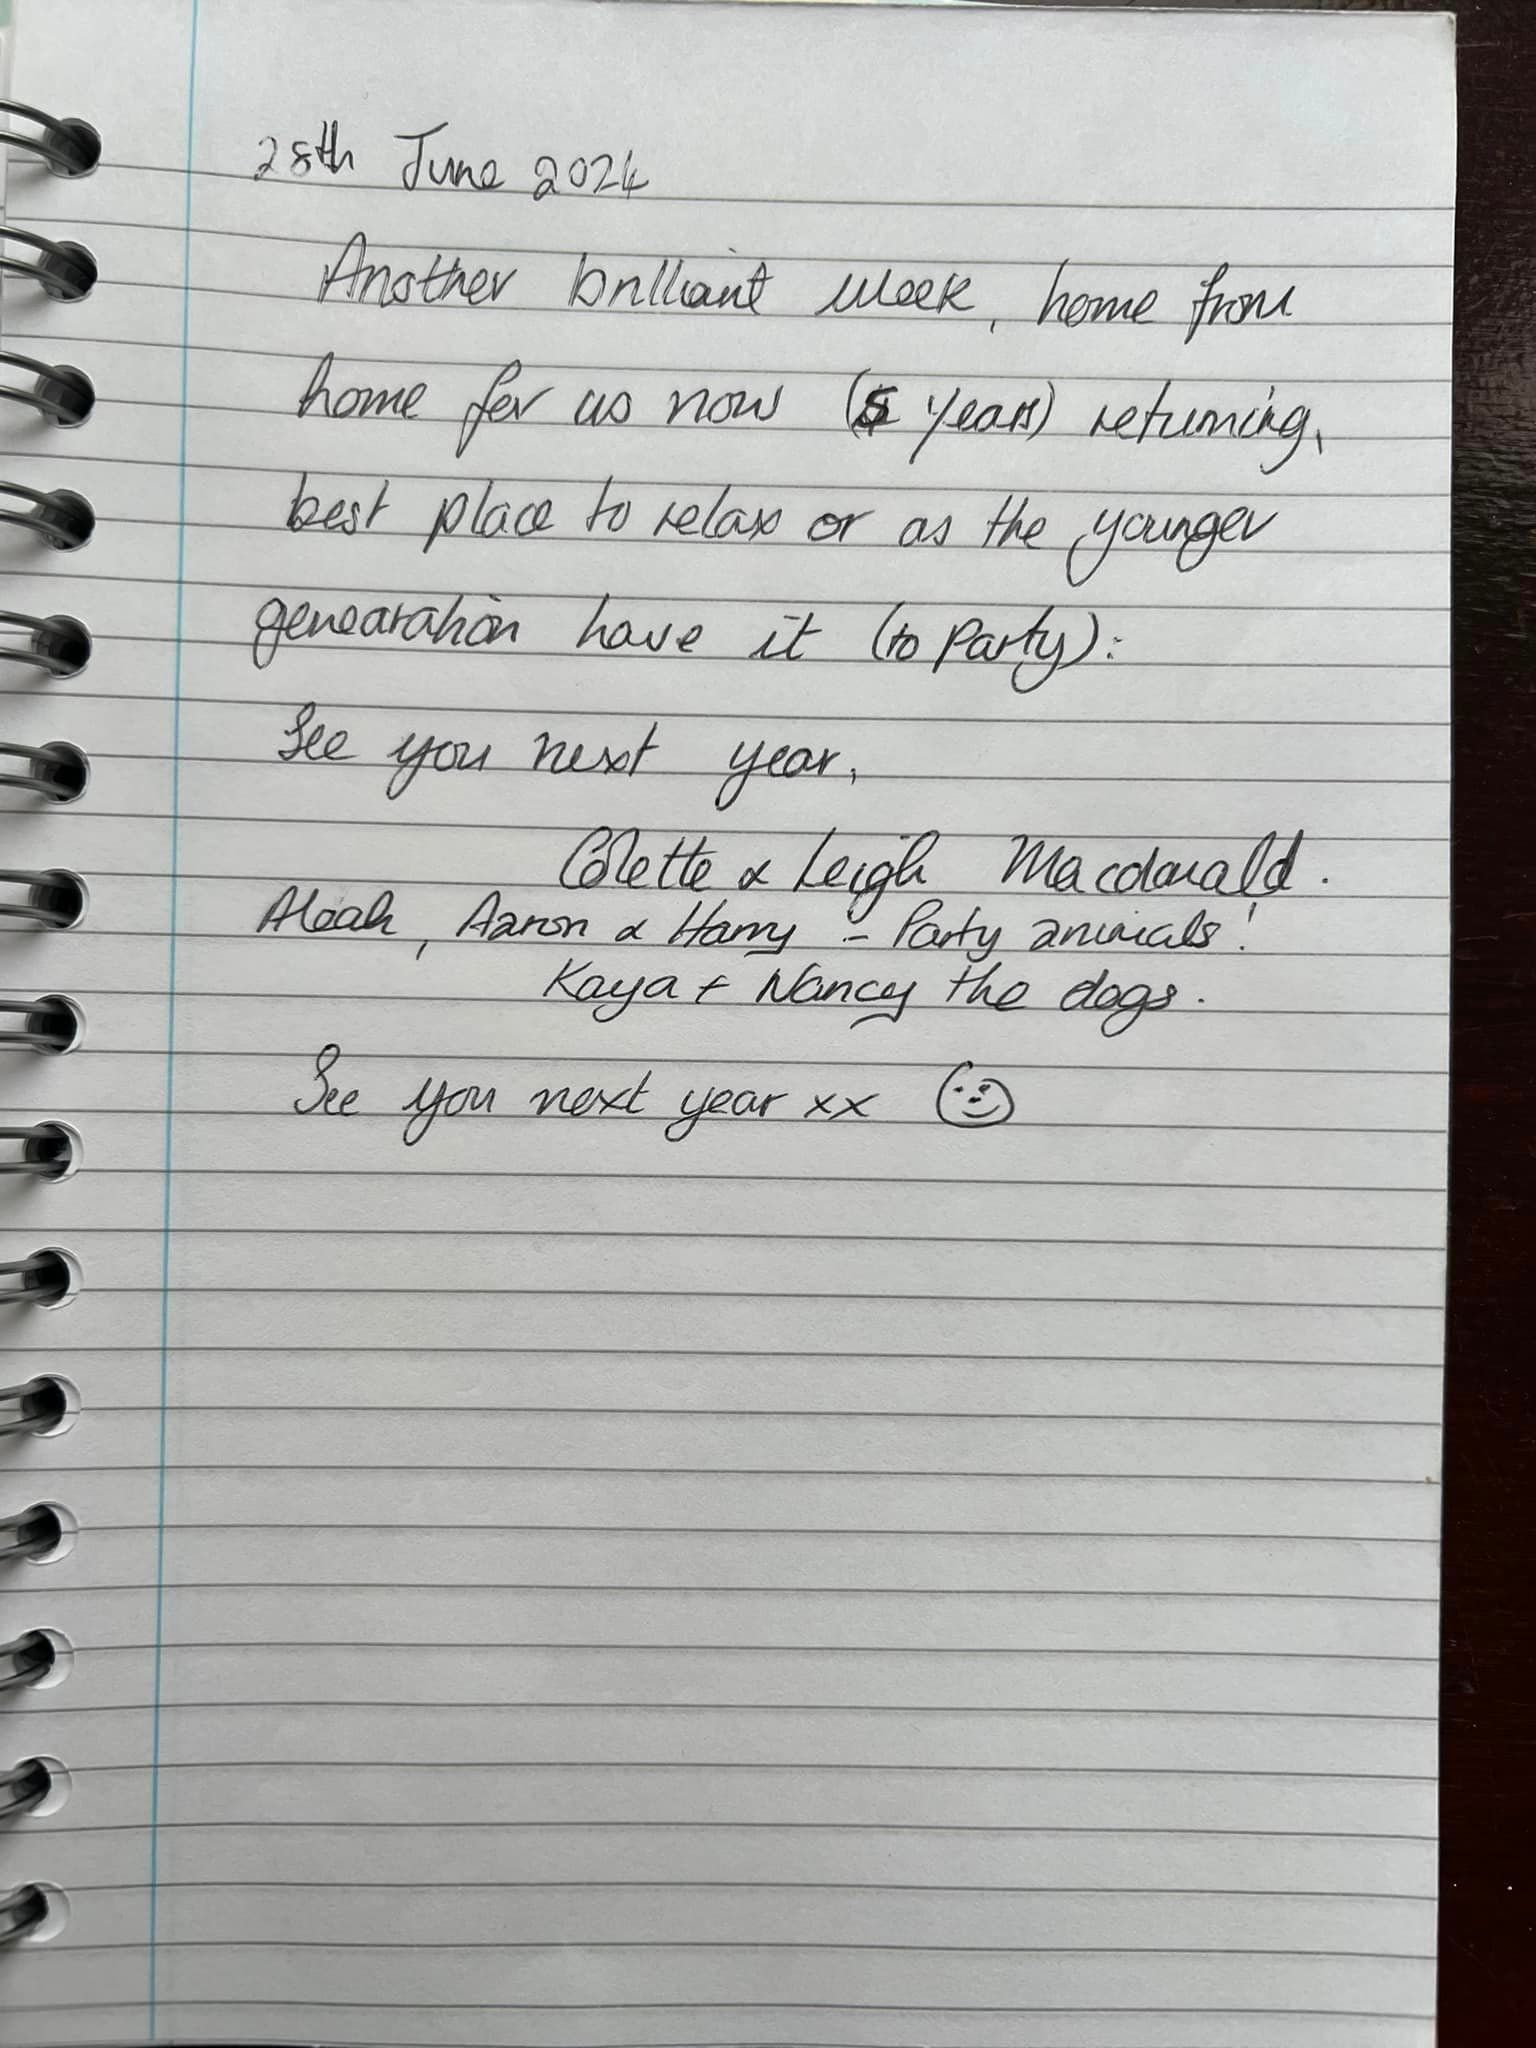 28th June 2024
Another brilliant week, home from
home for us now (5 years) returning,
best place to relax or as the younger
genearation have it (to Party):
See you next year,
Colette & Leigh Macdonald.
Aaron & Harry - Party animals!
Kaya + Nancy the dogs.
See you next year xx